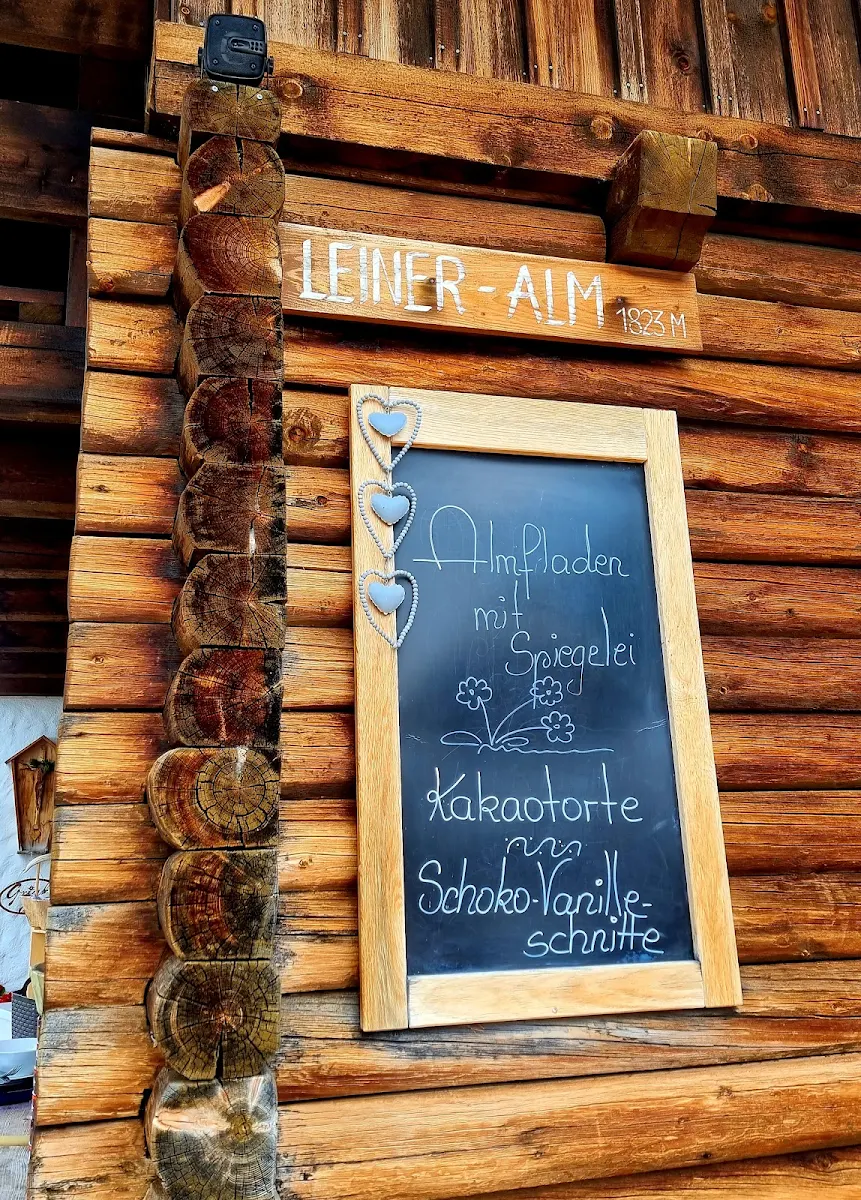 LEINER-ALM
1823 M
Almfladen
mit
Spiegelei
Kakaotorte
Schoko-Vanille-
schnitte